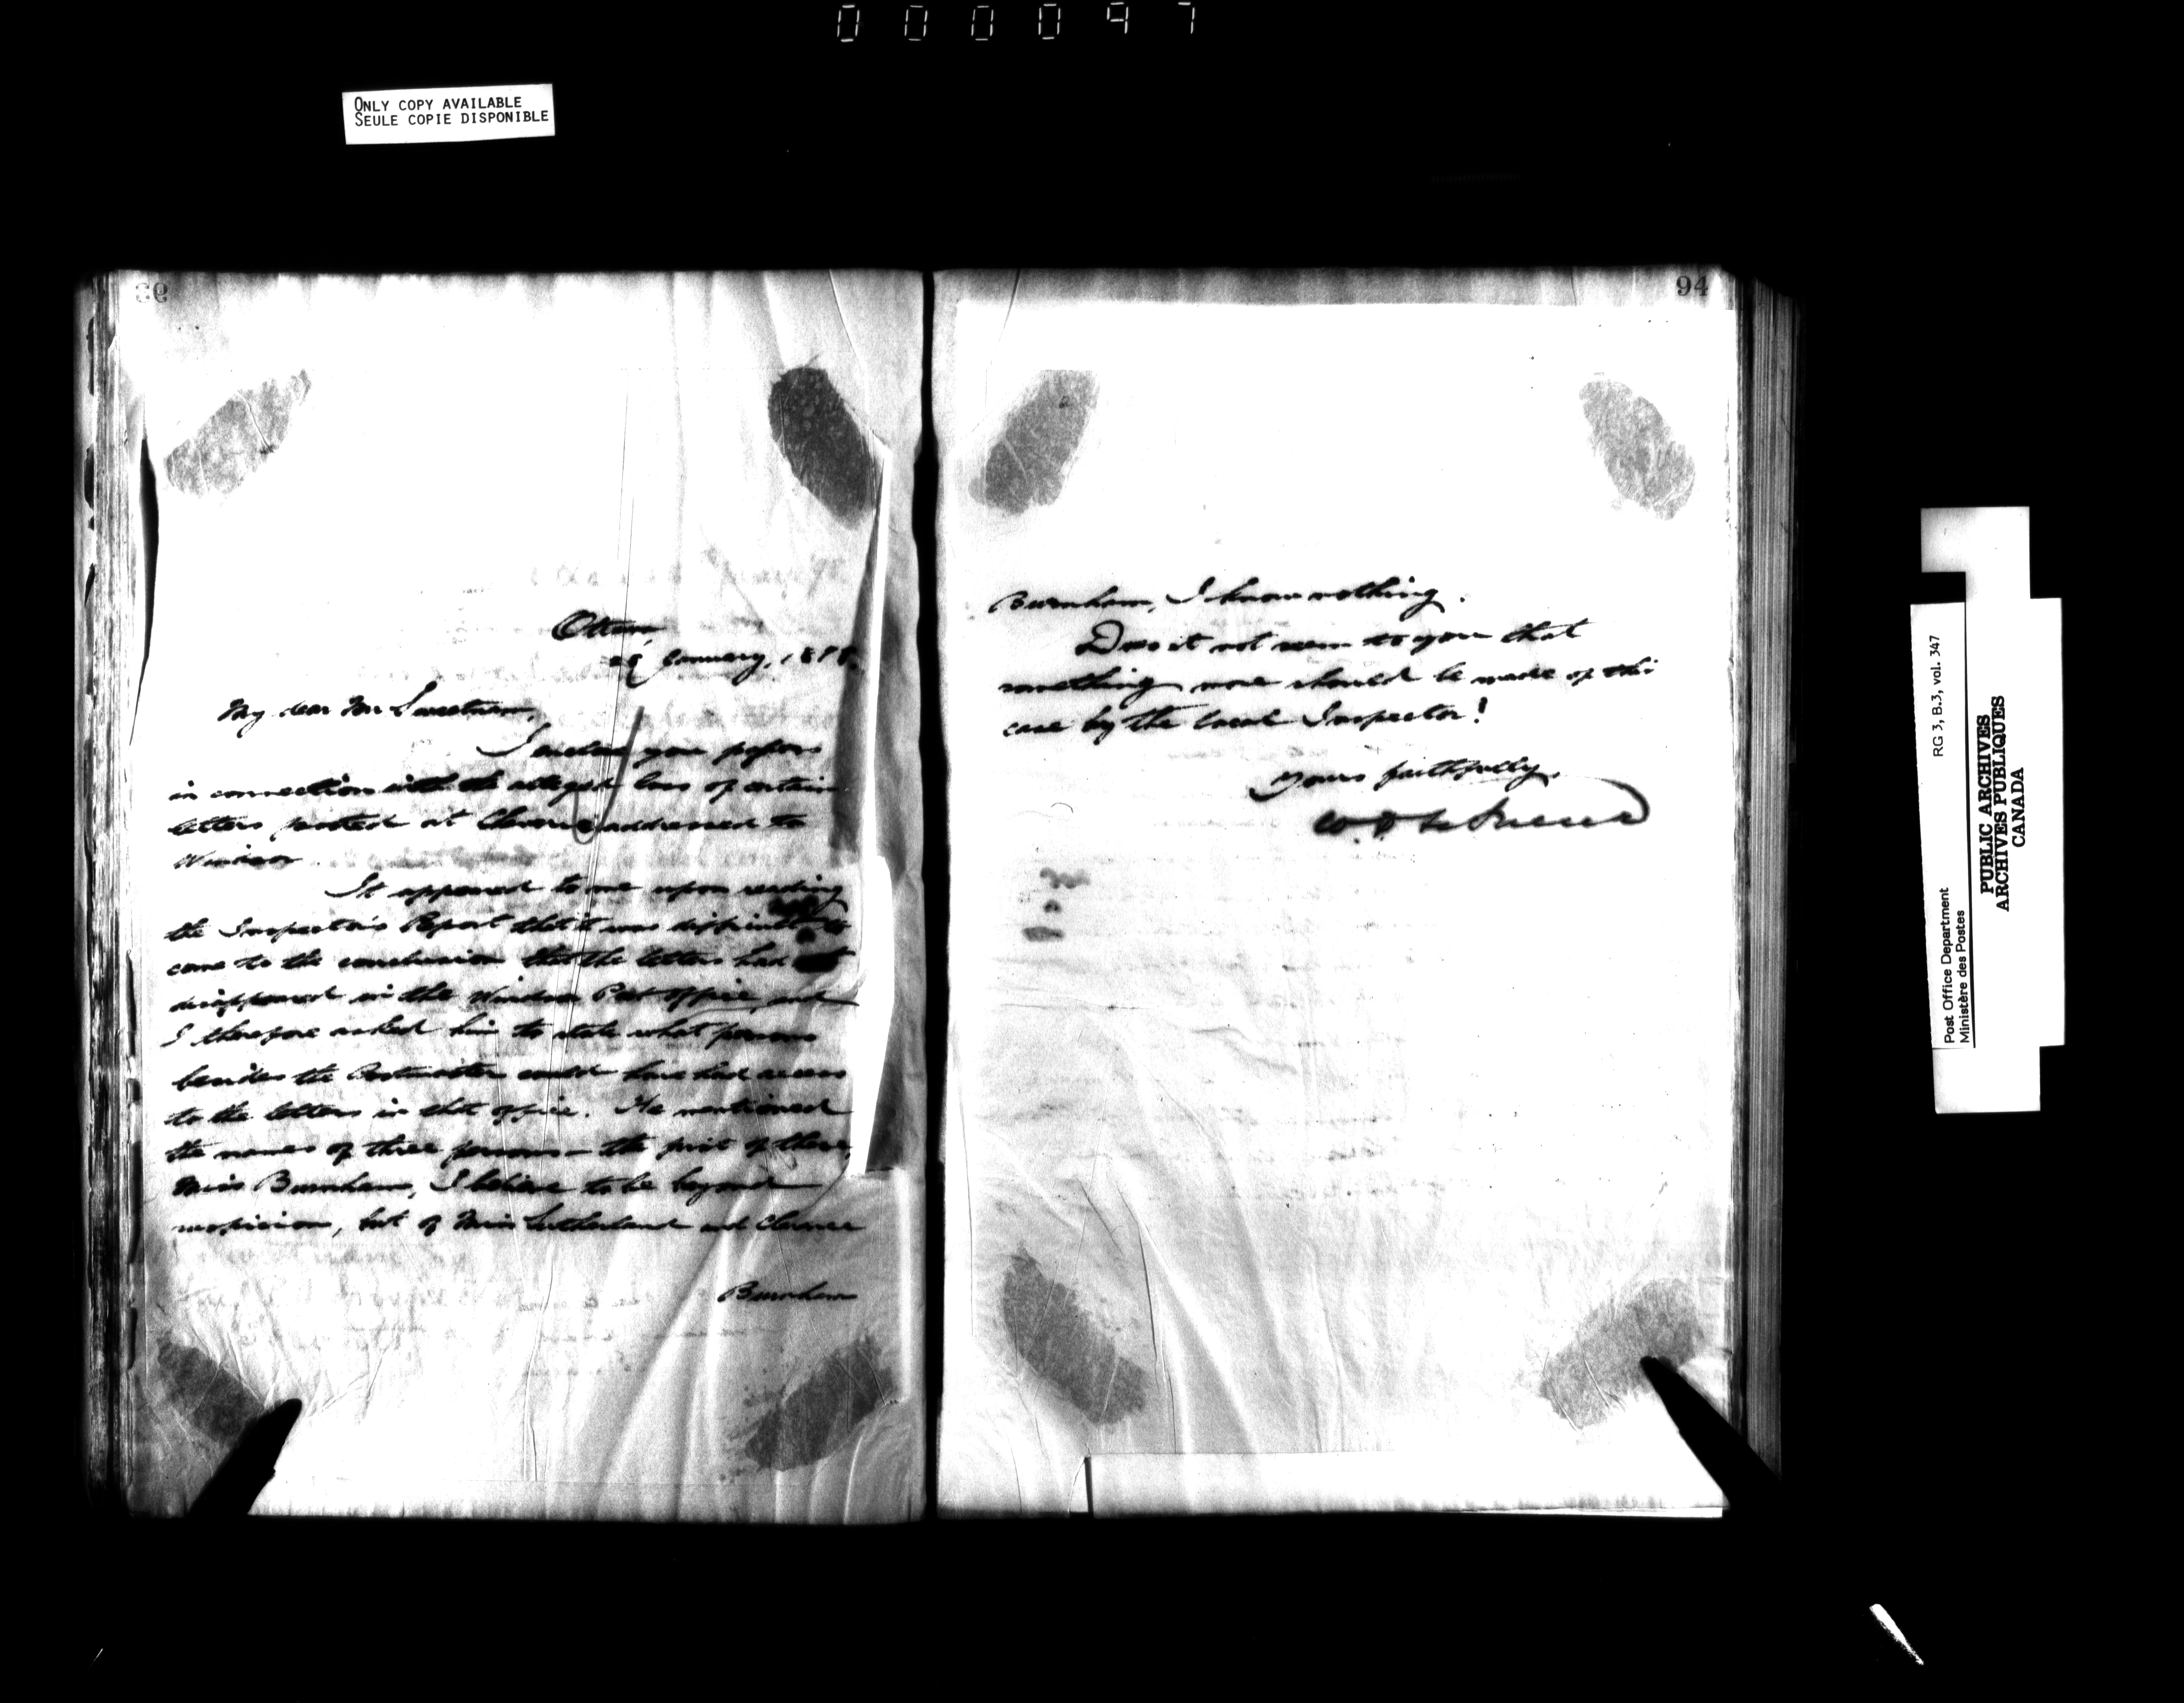 000097
ONLY COPY AVAILABLE
SEULE COPIE DISPONIBLE
Ottawa,
January, 188
My dear Mr Sweetnam,
I enclose you papers
in connection with the alleged loss of certain
letters posted at addressed to
Windsor.
It appeared to me upon reading
the Inspector's Report that it was difficult to
come to the conclusion that the letters had not
disappeared in the Windsor Post office, and
I therefore asked him to state what persons
besides the Postmaster could have had access
to the letters in that office. He mentioned
the names of three persons – the first of these,
Miss Burnham, I believe to be beyond
suspicion, but of Miss Sutherland and Clarence
Burnham
94
Burnham, I know nothing.
Does it not seem to you that
something more should be made of this
case by the local Inspector?
Yours faithfully,
W. D. LeSueur
RG 3, B.3, vol. 347
Post Office Department
Ministère des Postes
PUBLIC ARCHIVES
ARCHIVES PUBLIQUES
CANADA